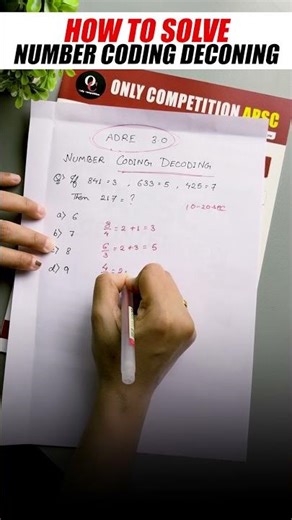 HOW TO SOLVE
NUMBER CODING DECONING
ONLY COMPETITION APSC
ADRE 3.0
NUMBER CODING DECODING
Q: If 841=3 , 633=5 , 425=7
Then 217=?
10-20 sec
a) 6
b) 7
c) 8
d) 9
8/4 = 2 + 1 = 3
6/3 = 2 + 3 = 5
4/2 = 2